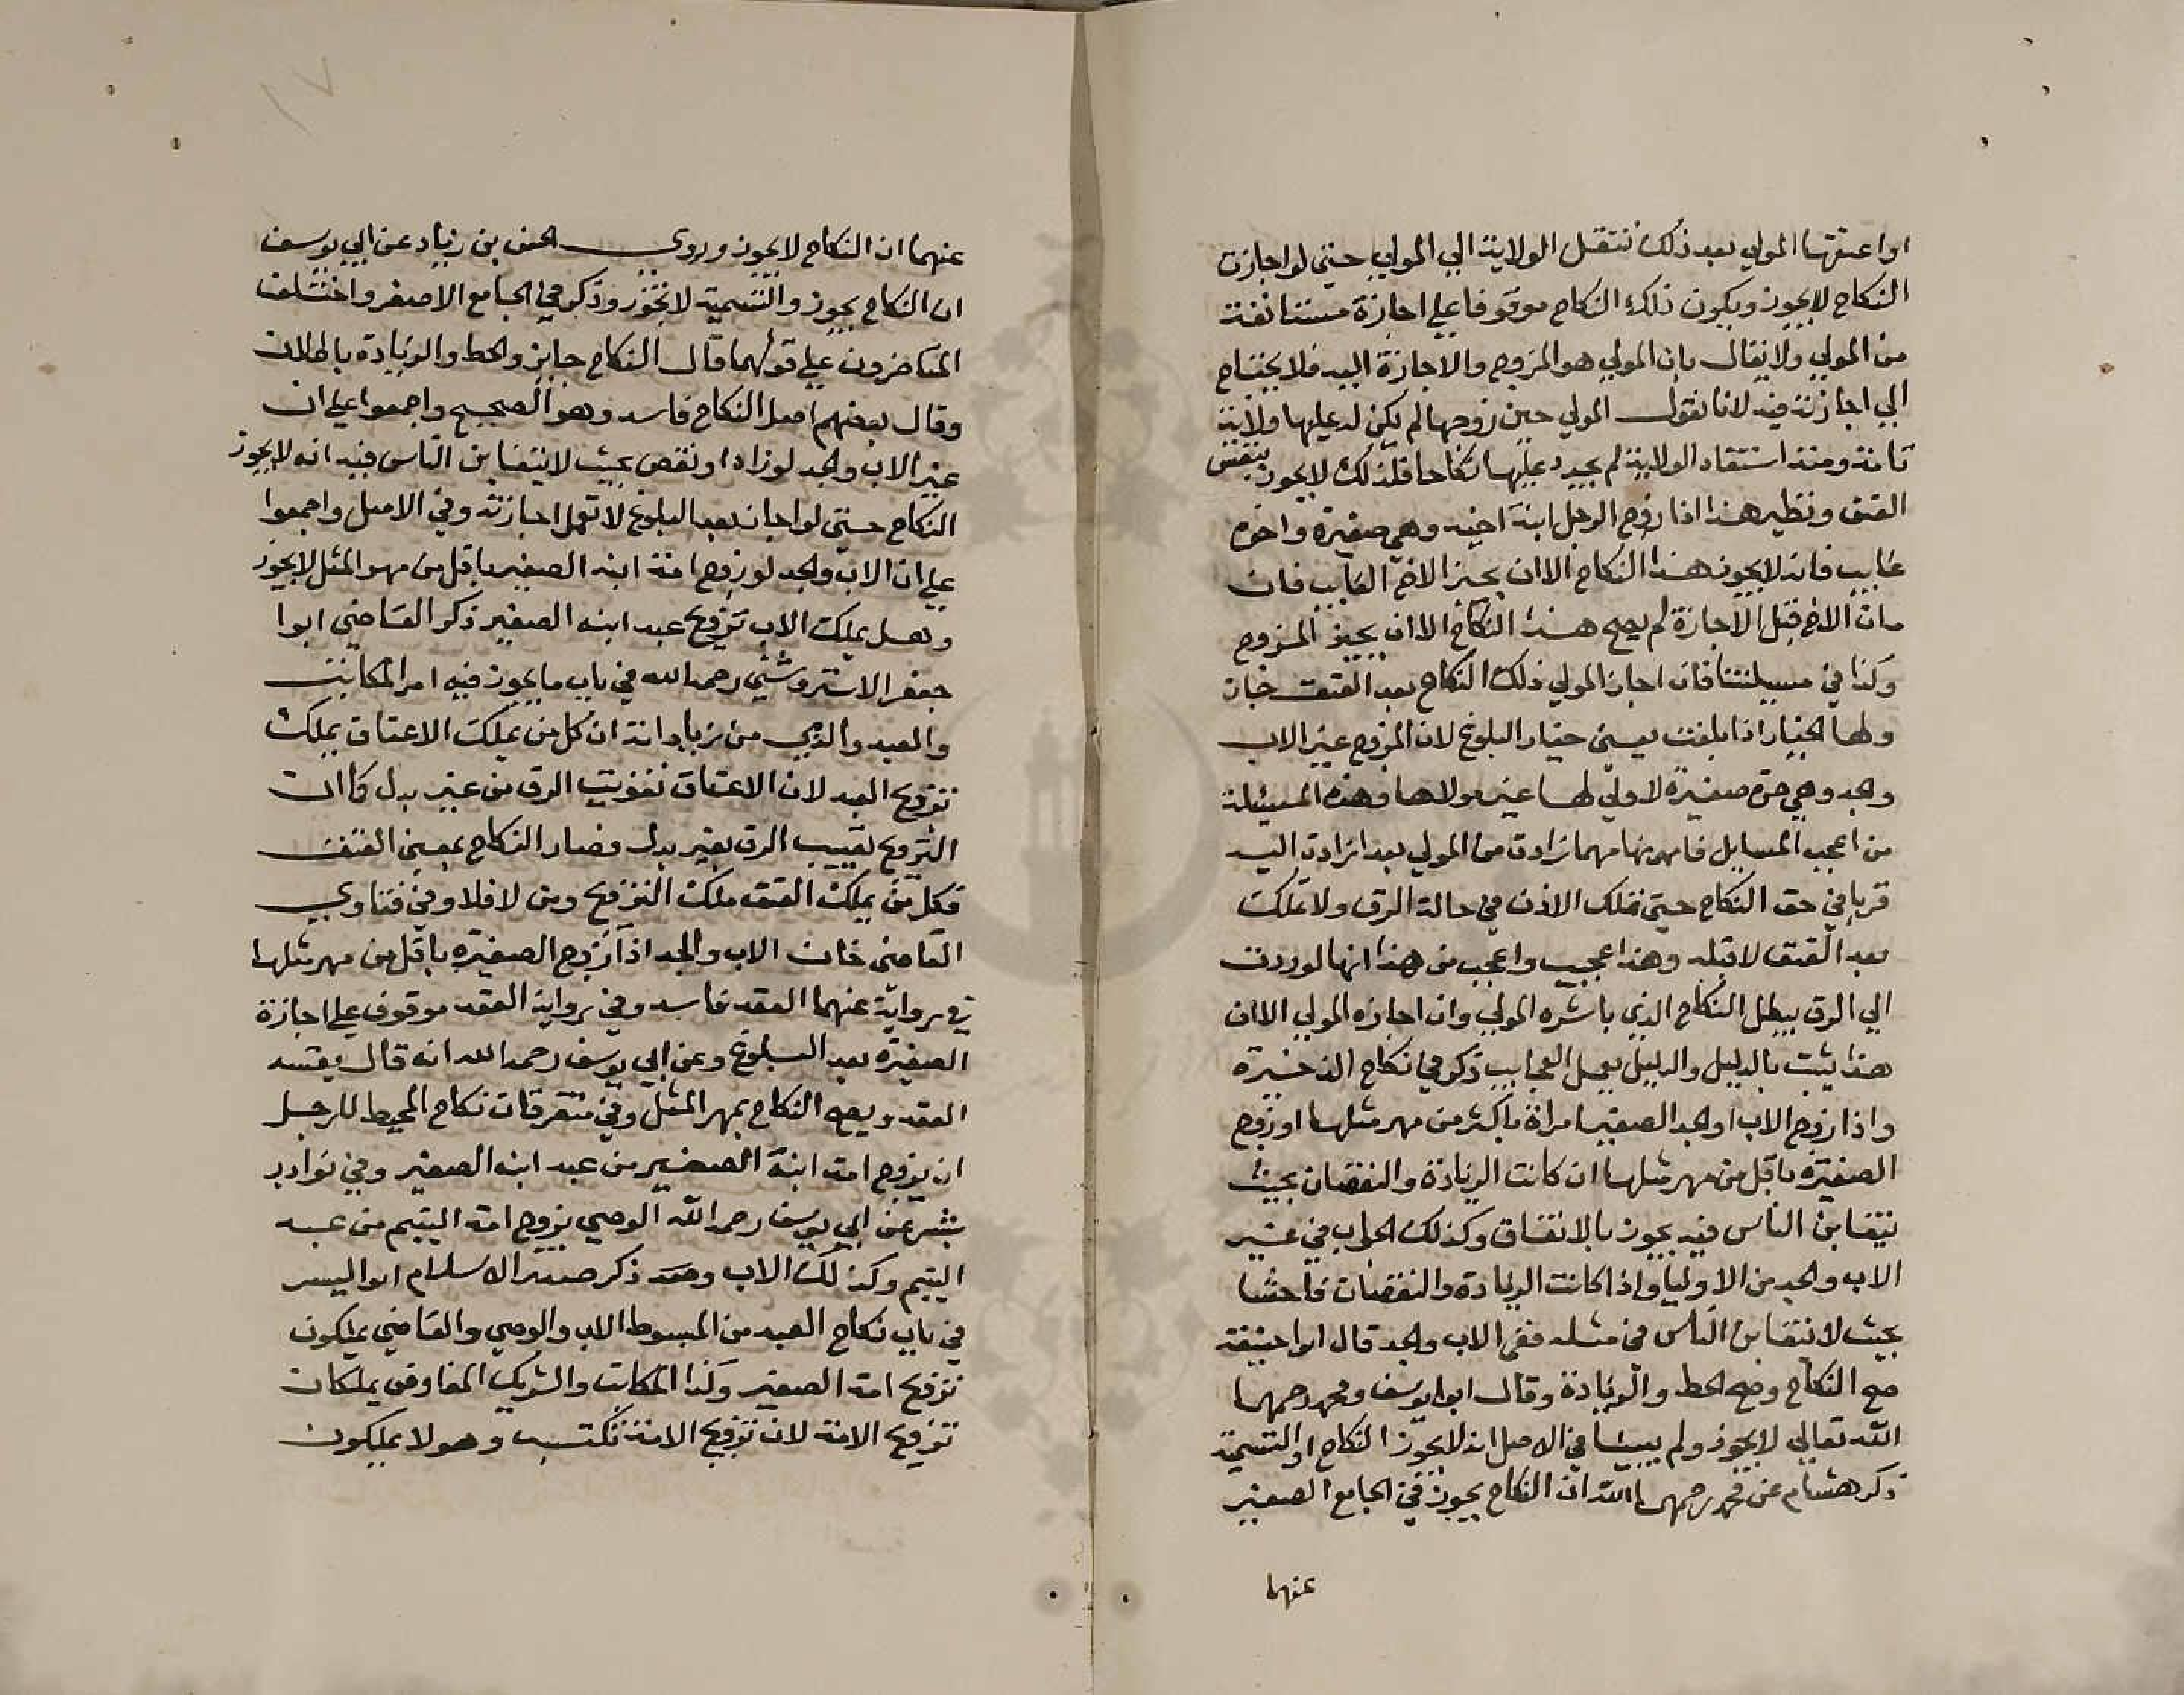 او اعتقتها المولي بعد ذلك تنتقل الولاية الي المولي حتي لو اجازت
النكاح لايجوز ويكون ذلك النكاح موقوفا علي اجازة مستانفة
من المولي ولايقال بان المولي هو المزوج والاجازة اليه فلا يحتاج
الي اجازته فيه لانا نقول المولي حين زوجها لم يكن له عليها ولاية
تامة ومنذ استفاد الولاية لم يجدد عليها نكاحا فلذلك لايجوز بنفس
العتق ونظير هذا اذا زوج الرجل ابنة اخيه وهي صغيرة واخوه
غايب فانه لايجوز هذا النكاح الا ان يجيز الاخ الغايب فان
مات الاخ قبل الاجازة لم يصح هذا النكاح الا ان يجيز المزوج
وكذا في مسيلتنا فان اجاز المولي ذلك النكاح بعد العتق جاز
ولها الخيار اذا بلغت يعني خيار البلوغ لان المزوج غير الاب
والجد وهي حرة صغيرة لا ولي لها غير مولاها وهذه المسيلة
من اعجب المسايل فانها مهما زادت من المولي بعدا زادت اليه
قربا في حق النكاح حتي تملك الاذن في حالة الرق ولا تملك
بعد العتق لا قبله وهذا عجيب واعجب من هذا انها لو ردت
الي الرق يبطل النكاح الذي باشره المولي وان اجازه المولي الا ان
هذا يثبت بالدليل والدليل يعمل العجايب ذكر في نكاح الذخيرة
واذا زوج الاب او الجد الصغير امراة باكثر من مهر مثلها او زوج
الصغيرة باقل من مهر مثلها ان كانت الزيادة والنقصان بحيث
يتغابن الناس فيه يجوز بالاتفاق وكذلك الجواب في غير
الاب والجد من الاوليا واذا كانت الزيادة والنقصان فاحشا
بحيث لا يتغابن الناس في مثله ففي الاب والجد قال ابوا حنيفة
صح النكاح وصح الحط والزيادة وقال ابوا يوسف ومحمد رحمهما
الله تعالي لايجوز ولم يبينا في الاصل انه لايجوز النكاح او التسمية
ذكر هشام عن محمد رحمهما الله ان النكاح يجوز في الجامع الصغير
عنهما
عنهما ان النكاح لايجوز وروي الحسن بن زياد عن ابي يوسف
ان النكاح يجوز والتسمية لاتجوز وذكر في الجامع الاصغر واختلف
المتاخرون علي قولهما قال النكاح جايز والحط والزيادة باطلان
وقال بعضهم اصل النكاح فاسد وهو الصحيح واجمعوا علي ان
غير الاب والجد لو زاد او نقص بحيث لايتغابن الناس فيه انه لايجوز
النكاح حتي لو اجاز بعد البلوغ لاتعمل اجازته وفي الاصل واجمعوا
علي ان الاب والجد لو زوج امة ابنه الصغير باقل من مهر المثل لايجوز
وهل يملك الاب تزويج عبد ابنه الصغير ذكر القاضي ابوا
جعفر الاستروشني رحمه الله في باب مايجوز فيه امر المكاتب
والعبد والذي من زياداته ان كل من يملك الاعتاق يملك
تزويج العبد لان الاعتاق تفويت الرق من غير بدل كما ان
التزويج تعييب الرق بغير بدل فصار النكاح بمعني العتق
فكل من يملك العتق ملك التزويج ومن لا فلا وفي فتاوي
القاضي خان الاب والجد اذا زوج الصغيرة باقل من مهر مثلها
في رواية عنهما العقد فاسد وفي رواية العقد موقوف علي اجازة
الصغيرة بعد البلوغ وعن ابي يوسف رحمه الله انه قال يفسد
العقد ويصح النكاح بمهر المثل وفي متفرقات نكاح المحيط للرجل
ان يزوج امة ابنة الصغير من عبد ابنه الصغير وفي نوادر
بشر عن ابي يوسف رحمه الله الوصي يزوج امة اليتيم من عبد
اليتيم وكذلك الاب وقد ذكر صدر الاسلام ابوا اليسر
في باب نكاح العبد من المبسوط الاب والوصي والقاضي يملكون
تزويج امة الصغير وكذا المكاتب والشريك المفاوض يملكان
تزويج الامة لان تزويج الامة تكتسب وهولا يملكون